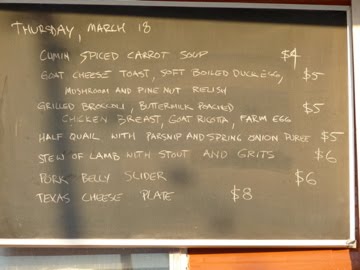 THURSDAY, MARCH 18
CUMIN SPICED CARROT SOUP $4
GOAT CHEESE TOAST, SOFT BOILED DUCK EGG, $5
MUSHROOM AND PINE NUT RELISH
GRILLED BROCCOLI, BUTTERMILK POACHED $5
CHICKEN BREAST, GOAT RICOTA, FARM EGG
HALF QUAIL WITH PARSNIP AND SPRING ONION PUREE $5
STEW OF LAMB WITH STOUT AND GRITS $6
PORK BELLY SLIDER $6
TEXAS CHEESE PLATE $8